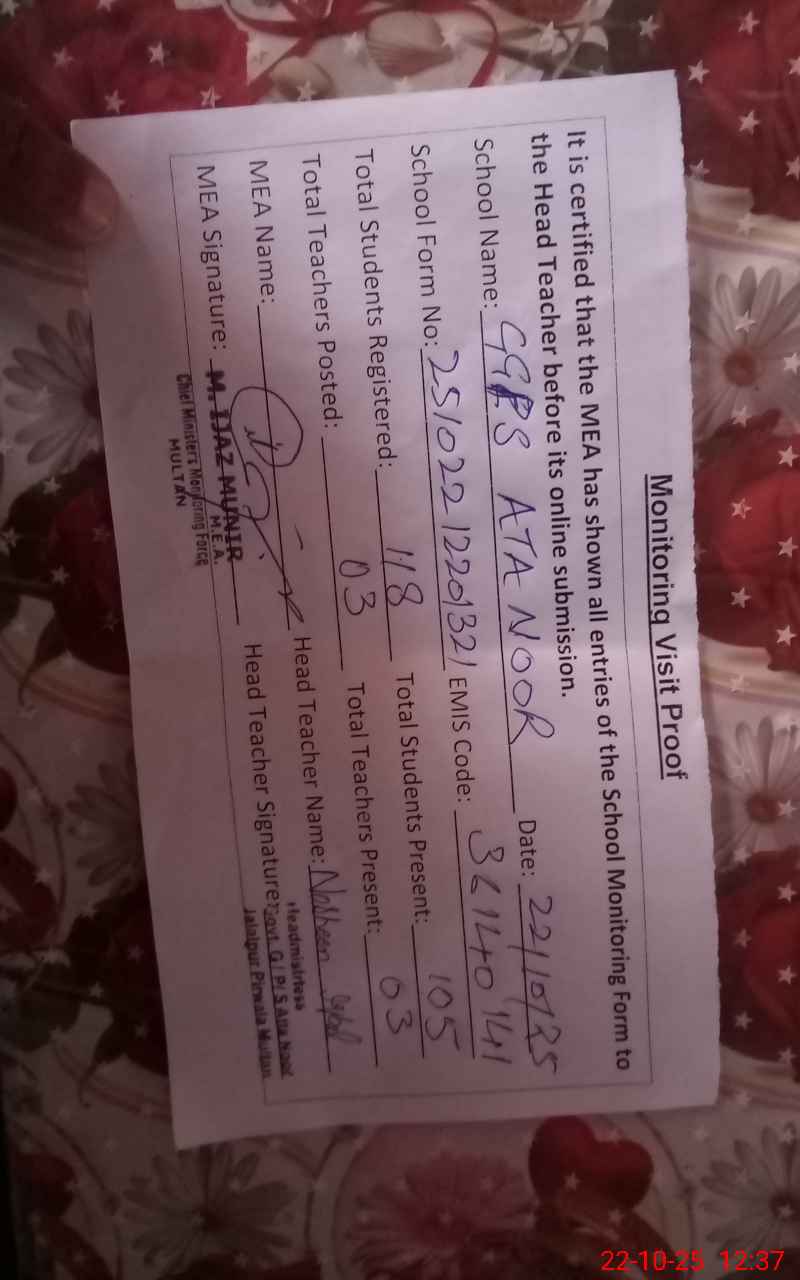 Monitoring Visit Proof
It is certified that the MEA has shown all entries of the School Monitoring Form to
the Head Teacher before its online submission.
School Name: GGPS ATA NOOR Date: 22/10/25
School Form No: 251022122013 21 EMIS Code: 36140141
Total Students Registered: 118 Total Students Present: 105
Total Teachers Posted: 03 Total Teachers Present: 03
MEA Name: Head Teacher Name: Nosheen
MEA Signature: M. IJAZ MUNIR Head Teacher Signature:
M.E.A.
Chief Minister's Monitoring Force
MULTAN
Headmistress
Govt. G/P/S Atta Noor
Jalalpur Pirwala Multan
22-10-25 12:37